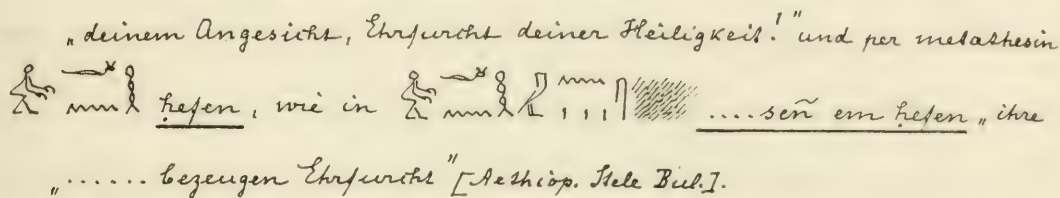 „deinem Angesicht, Ehrfurcht deiner Heiligkeit!" und per metathesin
hefen, wie in ....señ em hefen „ihre
„...... bezeugen Ehrfurcht" [Aethiop. Stele Bul.].